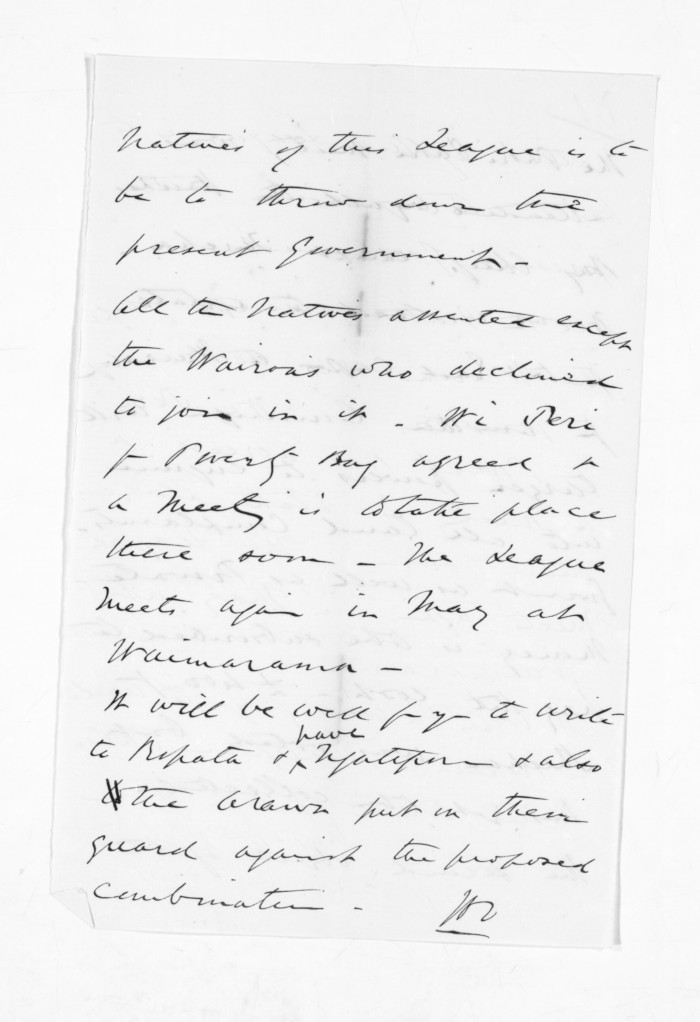 Natives of this League is to
be to throw down the
present Government -
All the Natives assented except
the Wairoas who declined
to join in it - Wi Peri
for Poverty Bay agreed &
a Meeting is to take place
there soon - The League
Meets again in May at
Waimarama -
It will be well for you to write
to Ropata & have Ngatiporou & also
the Arawa put on their
guard against the proposed
combination -